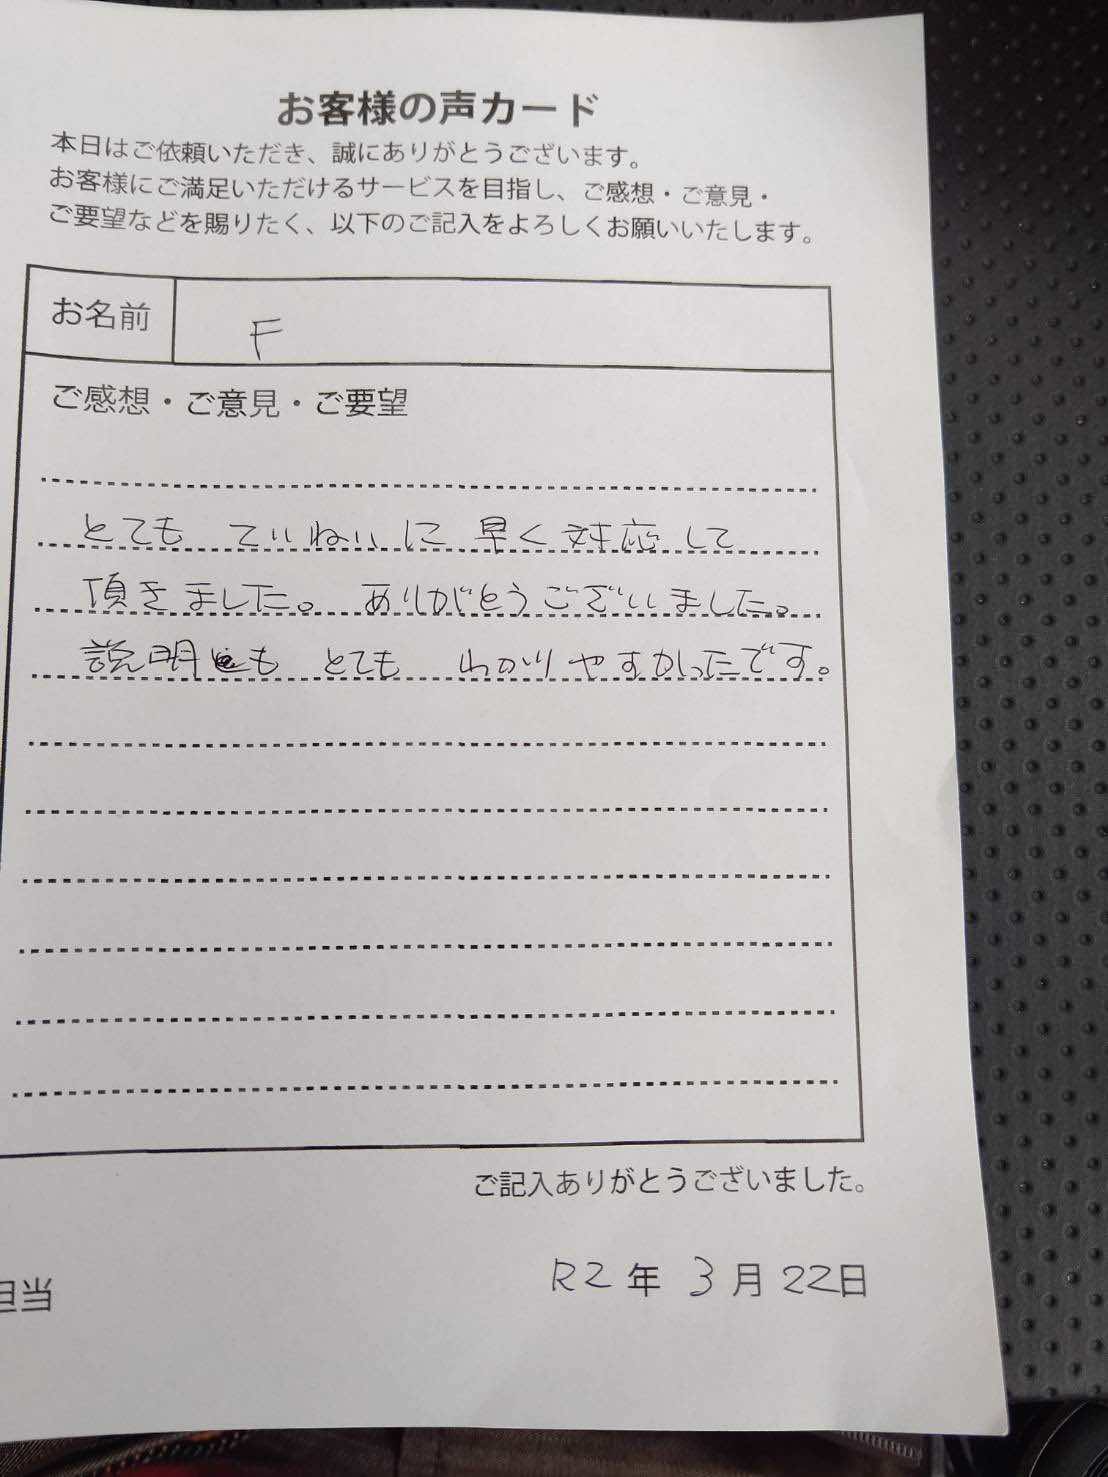 お客様の声カード
本日はご依頼いただき、誠にありがとうございます。
お客様にご満足いただけるサービスを目指し、ご感想・ご意見・
ご要望などを賜りたく、以下のご記入をよろしくお願いいたします。
お名前 F
ご感想・ご意見・ご要望
とても ていねいに 早く対応して
頂きました。 ありがとうございました。
説明も とても わかりやすかったです。
ご記入ありがとうございました。
R2年 3月22日
担当